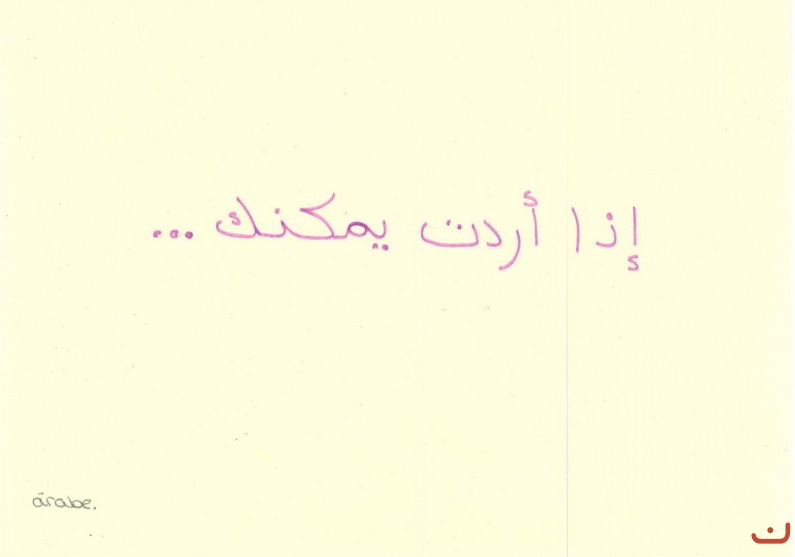 إذا أردت يمكنك...
árabe.